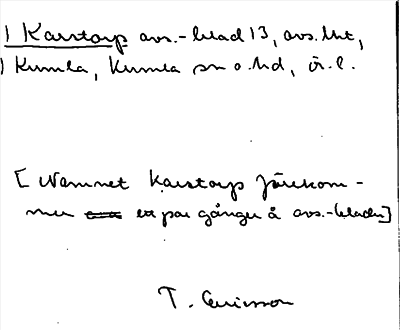 ) Karstorp avs.-blad 13, avs. lht,
) Kumla, Kumla sn o. hd, ör. l.
[Namnet Karstorp förekom-
mer ett par gånger å avs.-bladen]
T. Ericsson